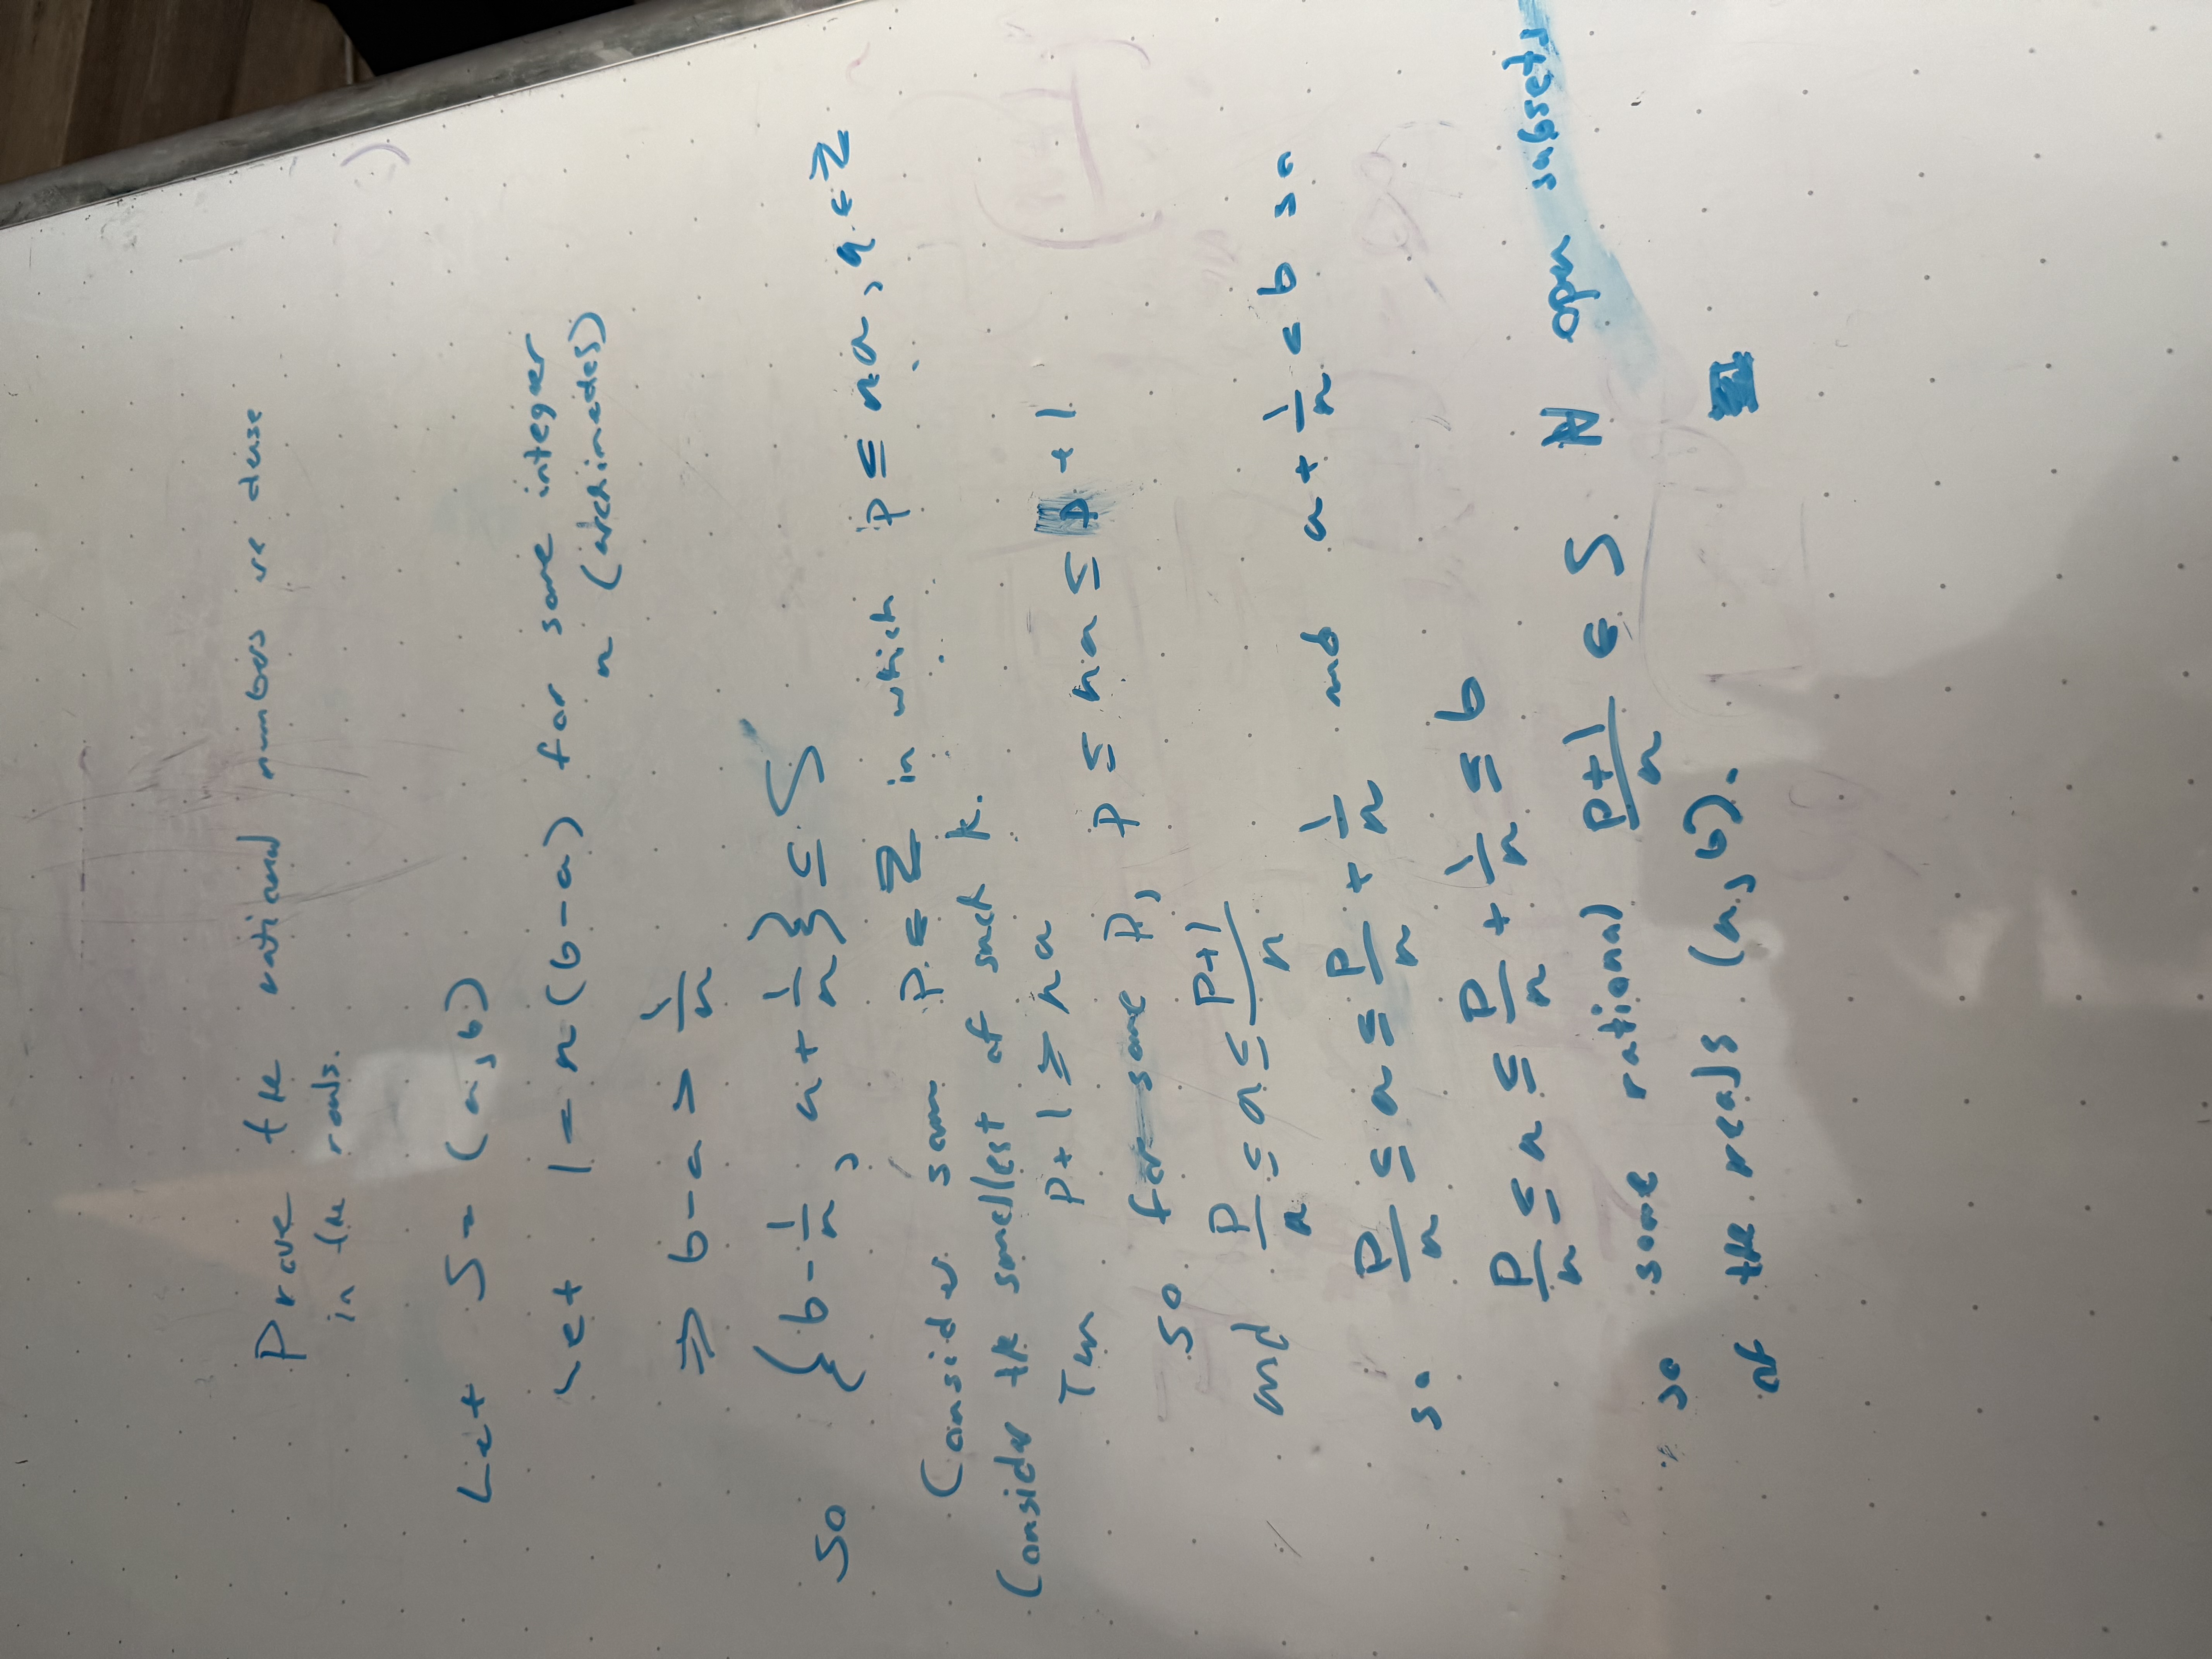 Prove the rational numbers are dense
in the reals.
Let S = (a, b)
Let 1 = n(b-a) for some integer
n (archimedes)
⇒ b-a > 1/n
so {b - 1/n, a + 1/n} ⊆ S
Consider some p ∈ ℤ in which p ≤ na, q ∈ ℤ
Consider the smallest of such k.
Then p+1 ≥ na
so for some p, p ≤ na ≤ p+1
and p/n ≤ a ≤ (p+1)/n
so p/n ≤ a ≤ p/n + 1/n and a + 1/n < b so
p/n ≤ a ≤ p/n + 1/n ≤ b
so some rational (p+1)/n ∈ S ∀ open subsets
of the reals (a, b).